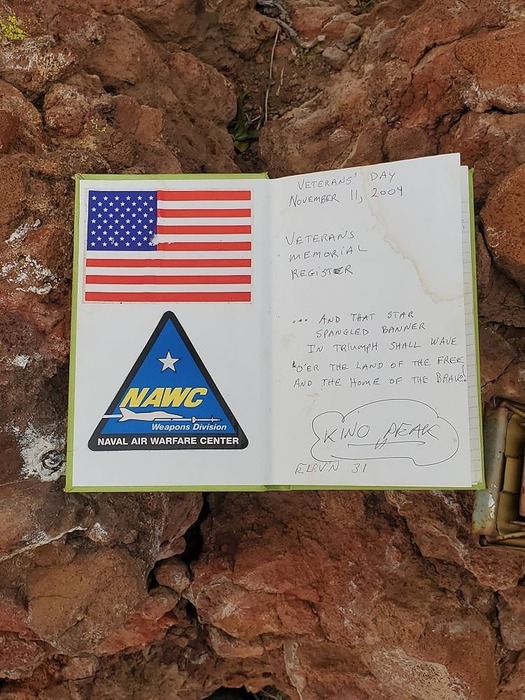 NAWC
Weapons Division
NAVAL AIR WARFARE CENTER
VETERANS' DAY
NOVEMBER 11, 2004
VETERANS
MEMORIAL
REGISTER
... AND THAT STAR
SPANGLED BANNER
IN TRIUMPH SHALL WAVE
'O'ER THE LAND OF THE FREE
AND THE HOME OF THE BRAVE!
KINO PEAK
31